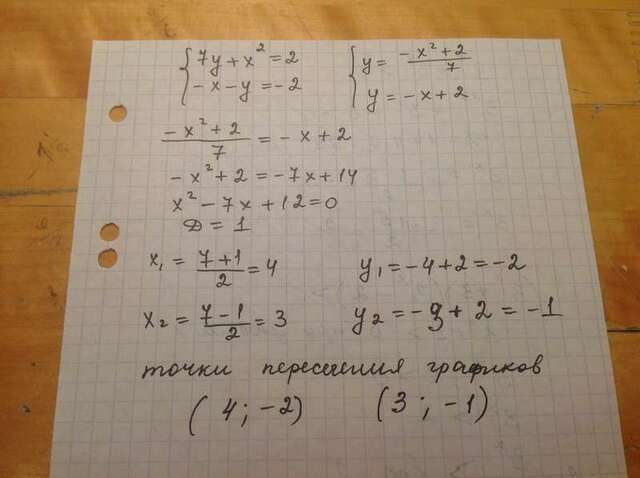 { 7y + x² = 2 { y = (-x² + 2)/7
{ -x - y = -2 { y = -x + 2
(-x² + 2)/7 = -x + 2
-x² + 2 = -7x + 14
x² - 7x + 12 = 0
D = 1
x₁ = (7 + 1)/2 = 4 y₁ = -4 + 2 = -2
x₂ = (7 - 1)/2 = 3 y₂ = -3 + 2 = -1
точки пересечения графиков
(4; -2) (3; -1)